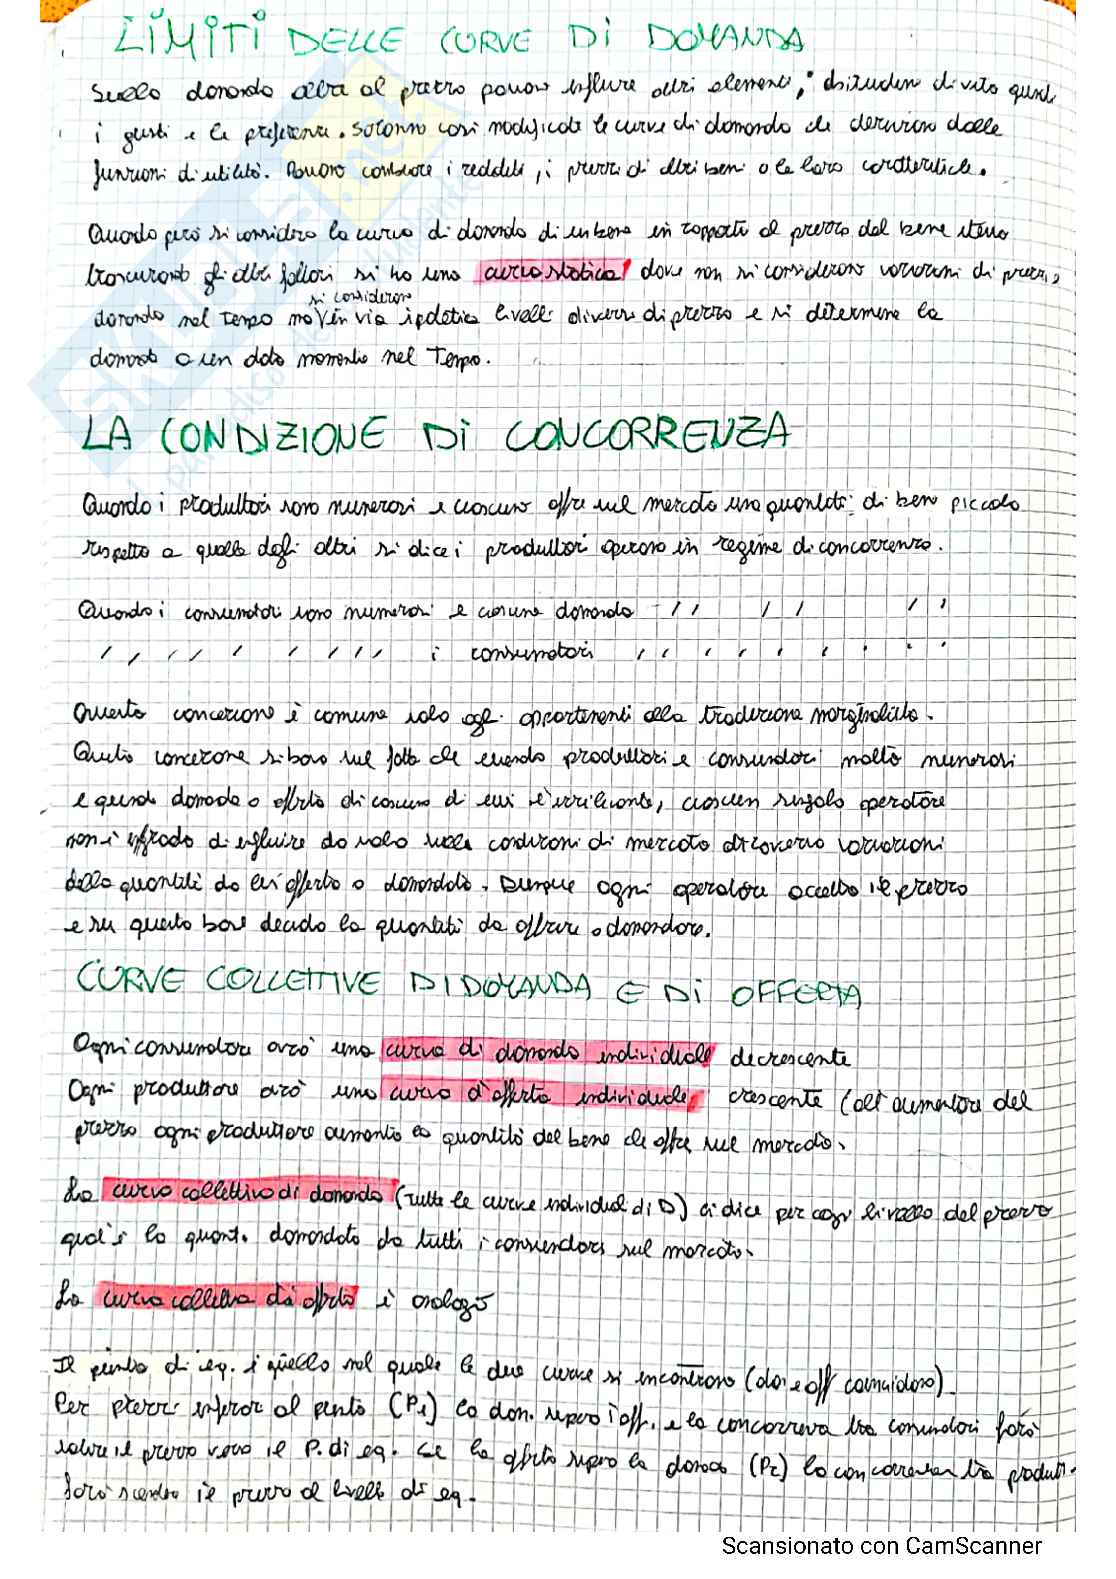 LIMITI DELLE CURVE DI DOMANDA
Sulla domanda oltre al prezzo possono influire altri elementi; abitudini di vita quindi
i gusti e le preferenze. Saranno così modificate le curve di domanda che derivano dalle
funzioni di utilità. Possono cambiare i redditi, i prezzi di altri beni o le loro caratteristiche.
Quando però si considera la curva di domanda di un bene in rapporto al prezzo del bene stesso
trascurando gli altri fattori si ha una curva statica dove non si considerano variazioni di prezzi,
si considerano
domanda nel tempo ma in via ipotetica livelli diversi di prezzo e si determina la
domanda a un dato momento nel tempo.
LA CONDIZIONE DI CONCORRENZA
Quando i produttori sono numerosi e ciascuno offre sul mercato una quantità di bene piccola
rispetto a quella degli altri si dice i produttori operano in regime di concorrenza.
Quando i consumatori sono numerosi e ciascuno domanda '' '' ''
' ' ' ' ' ' ' ' ' i consumatori ' ' ' ' ' ' ' ' '
Questa concezione è comune solo agli appartenenti alla tradizione marginalista.
Questa concezione si basa sul fatto che essendo produttori e consumatori molto numerosi
e quindi domanda o offerta di ciascuno di essi è irrilevante, ciascun singolo operatore
non è in grado di influire da solo sulle condizioni di mercato attraverso variazioni
della quantità da lui offerta o domandata. Dunque ogni operatore accetta il prezzo
e su questa base decide la quantità da offrire o domandare.
CURVE COLLETTIVE DI DOMANDA E DI OFFERTA
Ogni consumatore avrà una curva di domanda individuale decrescente
Ogni produttore avrà una curva d'offerta individuale crescente (all'aumentare del
prezzo ogni produttore aumenta la quantità del bene che offre sul mercato.
La curva collettiva di domanda (tutte le curve individuali di D) ci dice per ogni livello del prezzo
qual'è la quant. domandata da tutti i consumatori sul mercato.
La curva collettiva di offerta è analoga
Il punto di eq. è quello nel quale le due curve si incontrano (dom e off coincidono).
Per prezzi inferiori al punto (P1) la dom. supera l'off. e la concorrenza tra consumatori farà
salire il prezzo verso il P. di eq. Se la offerta supera la domanda (P2) la concorrenza tra produtt.
farà scendere il prezzo al livello di eq.
Scansionato con CamScanner